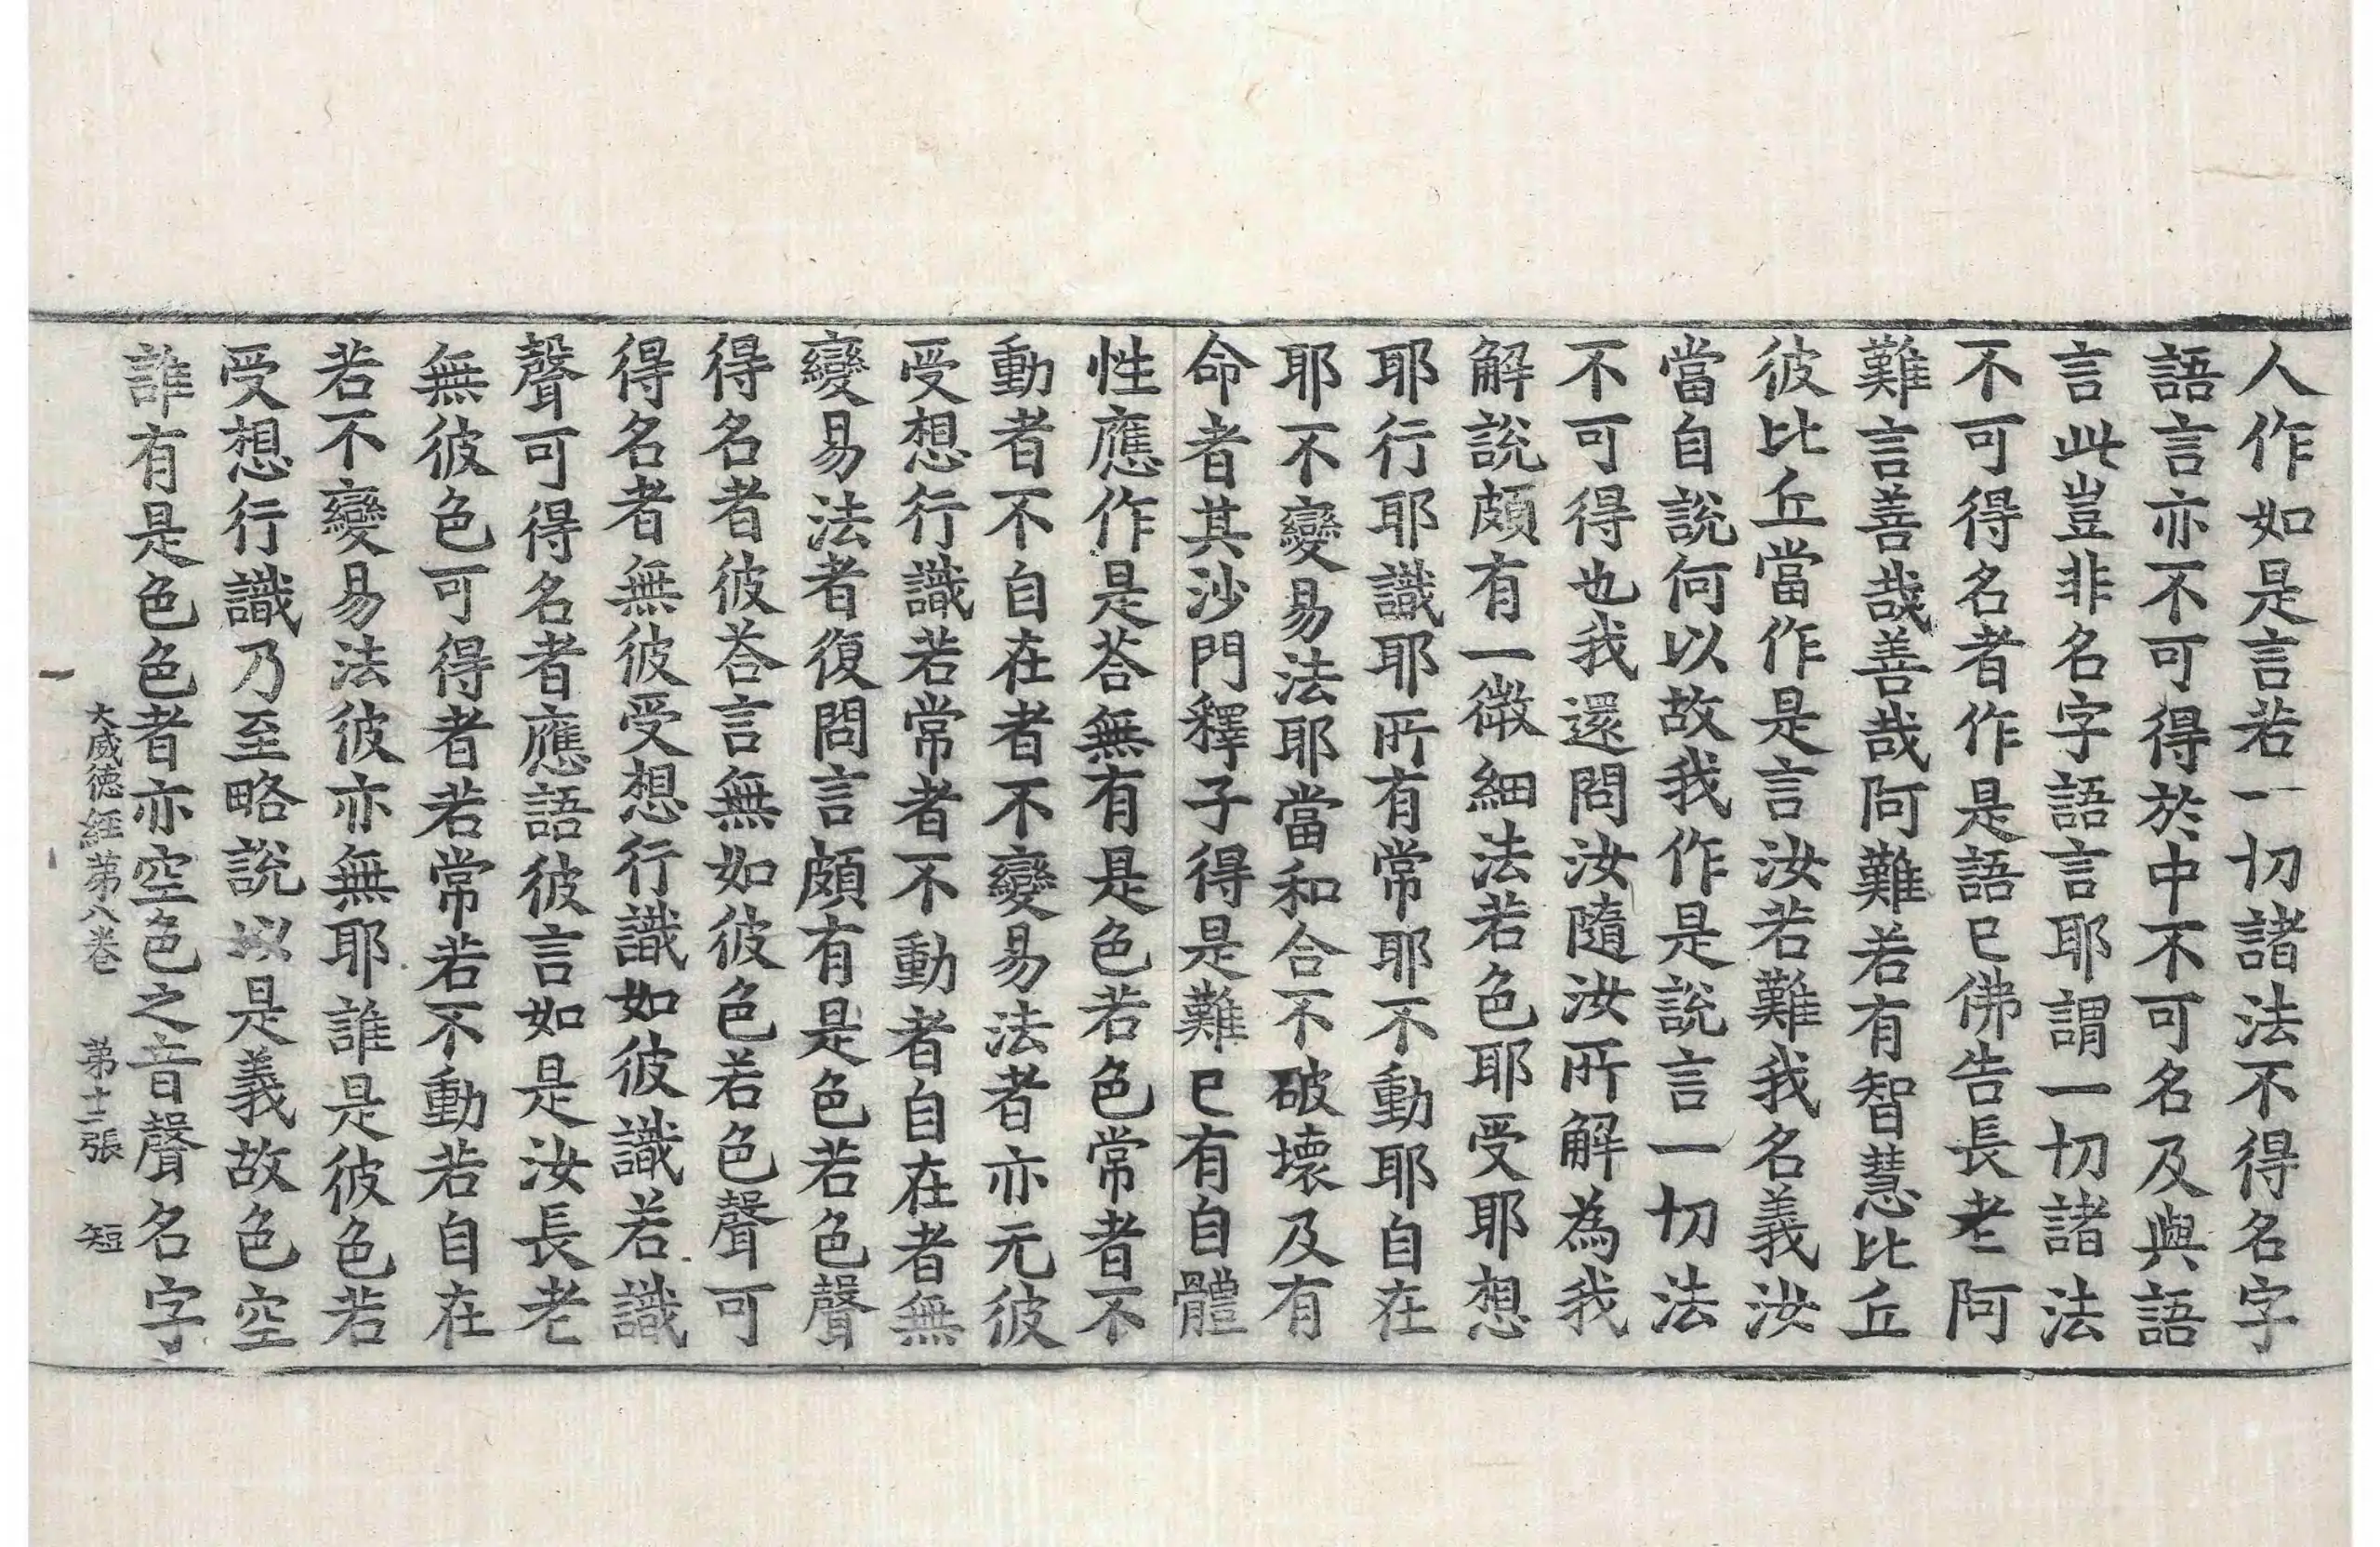 人作如是言若一切諸法不得名字
語言亦不可得於中不可名及與語
言此豈非名字語言耶謂一切諸法
不可得名者作是語已佛告長老阿
難言善哉善哉阿難若有智慧比丘
彼比丘當作是言汝若難我名義汝
當自說何以故我作是說言一切法
不可得也我還問汝隨汝所解為我
解說頗有一微細法若色耶受耶想
耶行耶識耶所有常耶不動耶自在
耶不變易法耶當和合不破壞及有
命者其沙門釋子得是難已有自體
性應作是荅無有是色若色常者不
動者不自在者不變易法者亦元彼
受想行識若常者不動者自在者無
變易法者復問言頗有是色若色聲
得名者彼荅言無如彼色若色聲可
得名者無彼受想行識如彼識若識
聲可得名者應語彼言如是汝長老
無彼色可得者若常若不動若自在
若不變易法彼亦無耶誰是彼色若
受想行識乃至略說以是義故色空
誰有是色色者亦空色之音聲名字
大威德經第八卷 第十二張 短